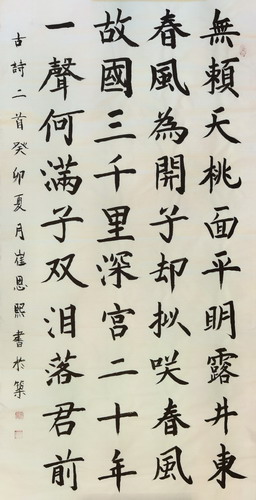 無賴夭桃面平明露井東
春風為開子却拟咲春風
故國三千里深宮二十年
一聲何滿子双泪落君前
古詩二首癸卯夏月崔恩熙書於築